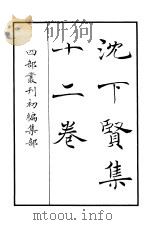 沈下賢集
十二卷
四部叢刊初編集部
mtoou.info